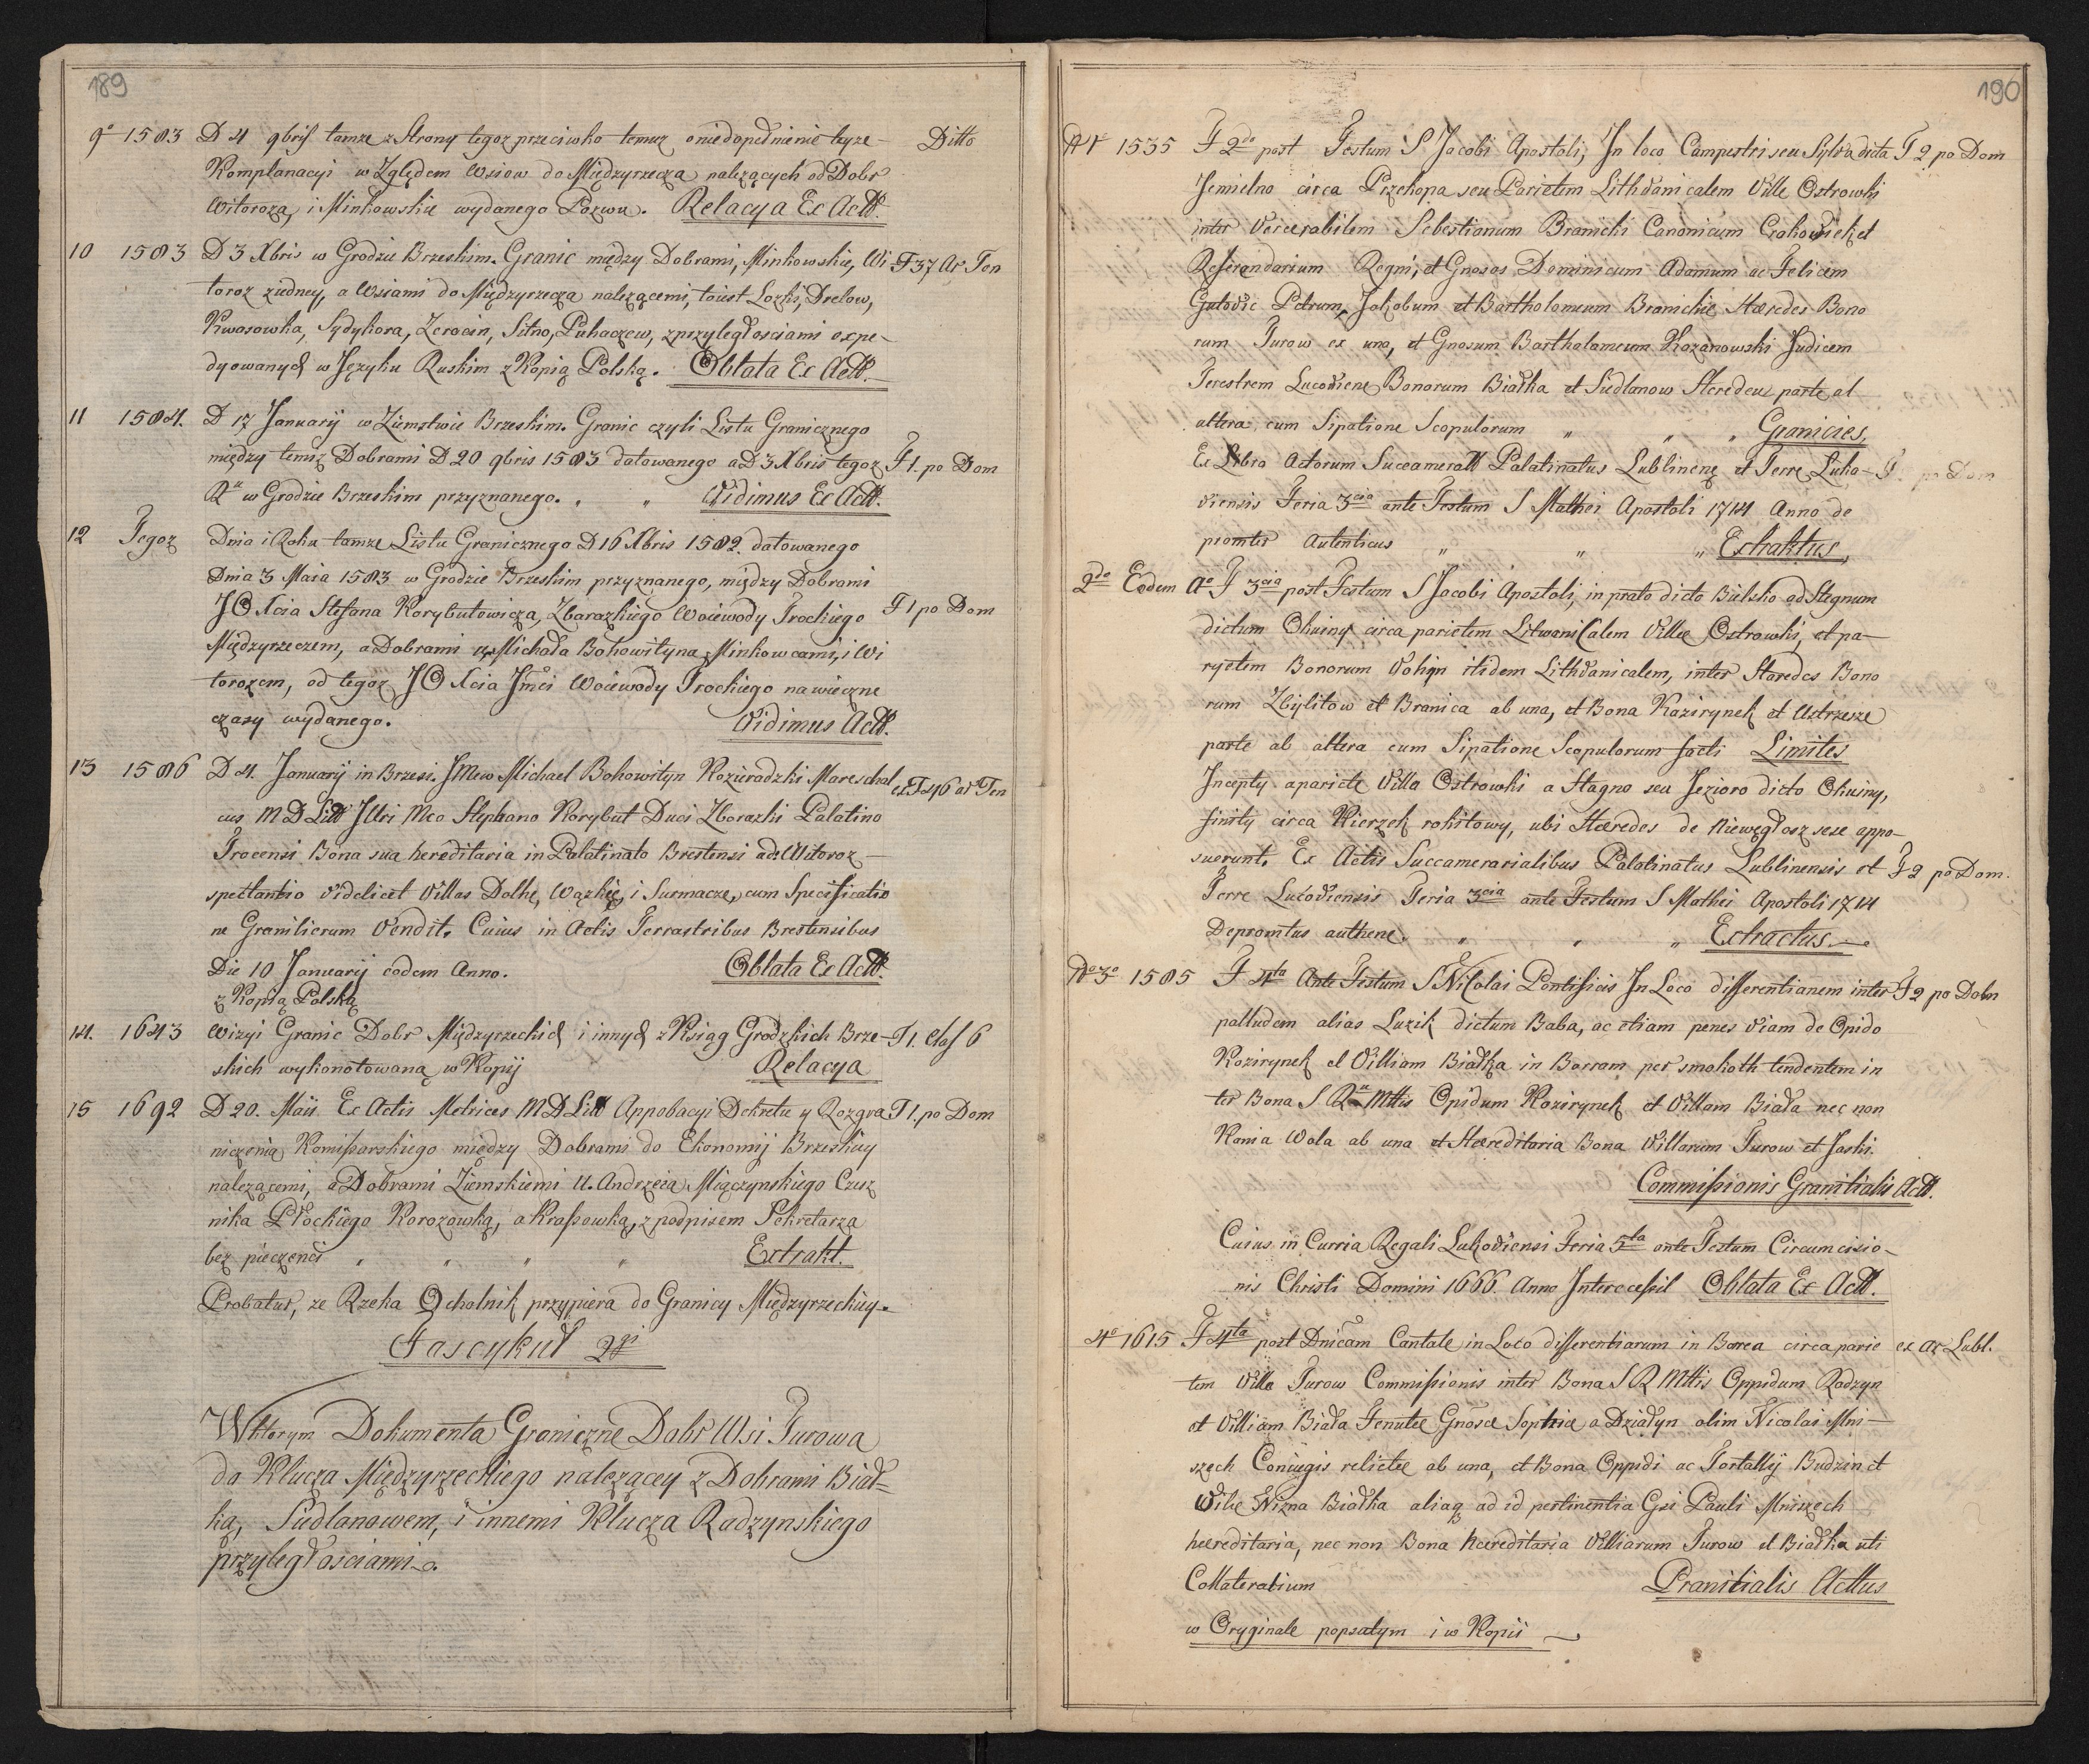 189
9º 1583 D 4 9bris tamze z Strony tegoz przeciwko temuz o niedopełnienie teyze Ditto
Komplanacyi w Zględem Wsiow do Międzyrzecza nalezących od Dobr
Witoroza, i Minkowskie wydanego Pozwu. Relacya Ex Actt.
10 1583 D 3 Xbris w Grodzie Brzeskim. Granic między Dobrami, Minkowskie, Wi F 37 Ar Ten
toroz zudney, a Wsiami do Międzyrzecza nalezącemi, toiest Lozki, Drelow,
Kwasowka, Sydykora, Zerocin, Sitno, Puhaczew, z przyległosciami expe-
dyowanych w Języku Ruskim z Kopią Polską. Oblata Ex Actt.
11 1584. D 17 Januarij w Ziemstwie Brzeskim. Granic czyli Listu Granicznego
między temiz Dobrami D 20 9bris 1583 datowanego a D 3 Xbris tegoz F 1. po Dom
Ru w Grodzie Brzeskim przyznanego. " " Vidimus Ex Actt.
12 Tegoz Dnia i Roku tamze Listu Granicznego D 16 Xbris 1582. datowanego
Dnia 3 Maia 1583 w Grodzie Brzeskim przyznanego, między Dobrami
JO Xcia Stefana Korybutowicza, Zbarazkiego Woiewody Trockiego F 1 po Dom
Międzyrzeczem, a Dobrami Michała Bohowityna Minkowcami, i Wi
torozem, od tegoz JO Xcia Jmci Woiewody Trockiego na wieczne
czasy wydanego. Vidimus Actt.
13 1586 D 4. Januarij in Brzesc. JMcio Michael Bohowityn Kozieradzki Mareschal ex F 46 ar Ten
cus M D Litt Jllri Mco Stephano Korybut Duci Zbarazki Palatino
Trocensi Bona sua hereditaria in Palatinato Brestensi ad Witoroz
spectantio videlicet Villas Dolhe, Wązkie, i Surmacze, cum Specificatio
ne Granilierum Vendit. Cuius in Actis Terrastribus Brestensibus
Die 10 Januarij eodem Anno. Oblata Ex Actt.
z Kopią Polską
14. 1643 Wizyi Granic Dobr Międzyrzeckich i innych z Ksiąg Grodzkich Brze- F 1. Clas 6
skich wykonotowaną w Kopij Relacya
15 1692 D 20. Maii. Ex Actis Metrices M D Litt Appobacyi Dekretu y Rozgra F 1. po Dom
niczenia Komissarskiego między Dobrami do Ekonomij Brzeskiey
nalezącemi, a Dobrami Ziemskiemi U. Andrzeia Miączynskiego Czesz
nika Płockiego Korozowką, a Krassowką, z podpisem Sekretarza
bez pieczenci " " " " Extrakt.
Probatur, ze Rzeka Ocholnik przypiera do Granicy Międzyrzeckiey.
Fascykuł 2gi
W ktorym Dokumenta Graniczne Dobr Wsi Turowa
do Klucza Międzyrzeckiego nalezącey z Dobrami Biał=
ką, Siedlanowem, i innemi Klucza Radzynskiego
przyległosciami.
190
Nr 1º 1535 F 2da post Festum S Jacobi Apostoli, In loco Campestri seu Sylva dicta F 2 po Dom
Jemielno circa Przekopa seu Parietem Lithvanicalem Ville Ostrowki
inter Vererabilem Sebestianum Branicki Canonicum Crakoviek et
Referendarium Regni, et Gnosos Dominicum Adamum ac Felicem
Gutovic Petrum, Jakobum et Bartholomeum Branickie Hæredes Bono
rum Turow ex una, et Gnosum Barthalomeum Kazanowski Judicem
Terestrem Lucoviene Bonorum Białka et Siedlanow Hæredem parte al
altera, cum Sipatione Scopulorum " " " Granicies,
Ex Libro Actorum Succamerall Palatinatus Lublinene et Terre Luko- F. po Dom
viensis Feria 3cia ante Festum S Mathei Apostoli 1714 Anno de
promter Autenticus " " " Extraktus,
2do Eodem Aº F 3cia post Festum S Jacobi Apostoli, in prato dicto Bielsko ad Stegnum
dictum Okuiny circa parietem Litwanicalem Villæ Ostrowki, et pa-
ryetem Bonorum Vohyn itidem Lithvanicalem, inter Hæredes Bono
rum Zbylitow et Branica ab una, et Bona Kozirynek et Ustrzesze
parte ab altera cum Sipatione Scopulorum facti Limites
Incepty a pariete Villa Ostrowki a Stagno seu Jezioro dicto Okuiny,
finity circa Kierzek rokitowy, ubi Hæredes de Niewęgłosz sese appo-
suerunt. Ex Actis Succamerarialibus Palatinatus Lublinensis et F 2 po Dom.
Terre Lucoviensis Feria 3cia ante Festum S Mathei Apostoli 1714
Depromtus authene. " " " Extractus.
Nº 3º 1585 F 4ta Ante Festum S Nicolai Pontificis In Loco differentianem inter F 2 po Dobn
palludem alias Luzik dictum Baba, ac etiam penes viam de Opido
Kozirynek el Villiam Białka in Borram per smokoth tendentem in
ter Bona S Ru Mttis Opidum Kozirynek et Villam Biała nec non
Kania Wola ab una et Hæreditaria Bona Villarum Turow et Jaski.
Commissionis Granitialis Actt.
Cuius in Curria Regali Lukoviensi Feria 5ta ante Festum Circumcisio-
nis Christi Domini 1666. Anno Intercessit Oblata Ex Actt.
4º 1615 F 4ta post Dnicam Cantate in Loco differentiarum in Borrea circa parie ex ar Lubl.
tem Villa Turow Commissionis inter Bona S R Mttis Oppidum Radzyn
et Villiam Biała Tenutæ Gnosæ Sophiæ a Działyn olim Nicolai Mni-
szech Coniugis relictæ ab una, et Bona Oppidi ac Fortallij Budzin et
Wilie Nizna Białka aliaq ad id pertinentia Gsi Pauli Mniszech
hæreditaria, nec non Bona hæreditaria Villiarum Turow et Białka uti
Collateralium Granitialis Acttus
w Oryginale popsutym i w Kopii